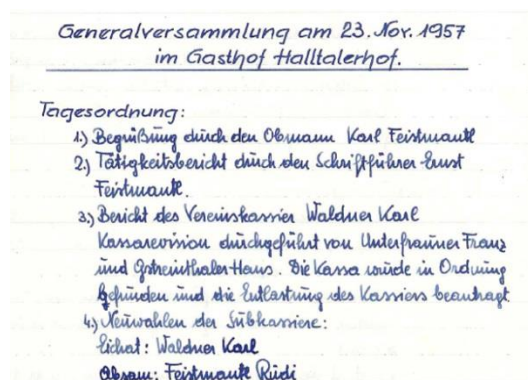 Generalversammlung am 23. Nov. 1957
im Gasthof Halltalerhof.
Tagesordnung:
1.) Begrüßung durch den Obmann Karl Feistmantl
2.) Tätigkeitsbericht durch den Schriftführer Ernst
Feistmantl.
3.) Bericht des Vereinskassier Waldner Karl
Kassarevision durchgeführt von Unterfrauner Franz
und Gstreinthaler Hans. Die Kassa wurde in Ordnung
befunden und die Entlastung des Kassiers beautragt
4.) Neuwahlen der Subkassiere:
Eichat: Waldner Karl
Absam: Feistmantl Rudi